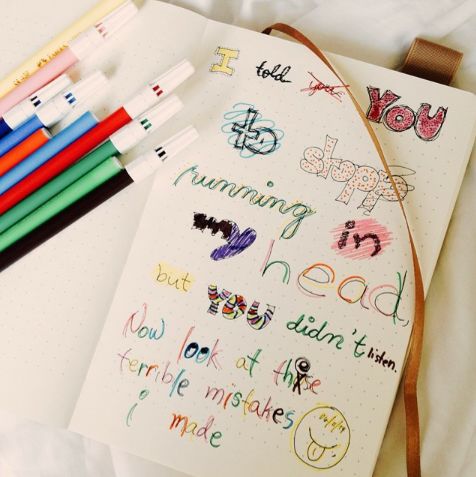 I told you YOU
to stopp
running
my in
head
but YOU didn't listen.
Now look at these
terrible mistakes
i made